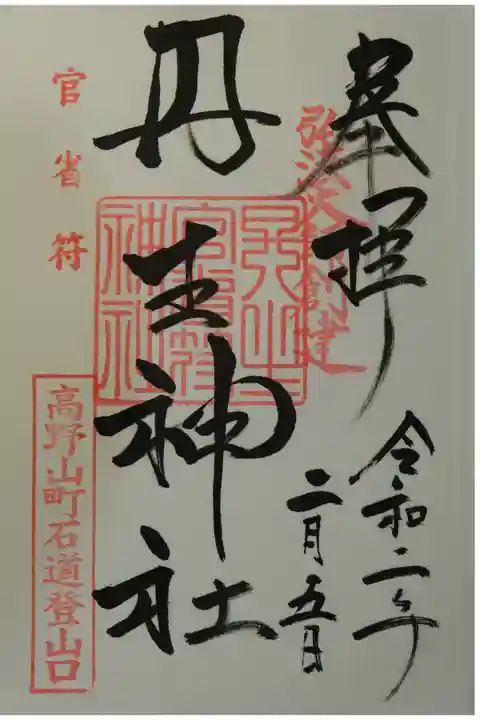 奉拝
弘法大師創建
令和二年
二月五日
丹生神社
丹生官省符神社
官省符
高野山町石道登山口